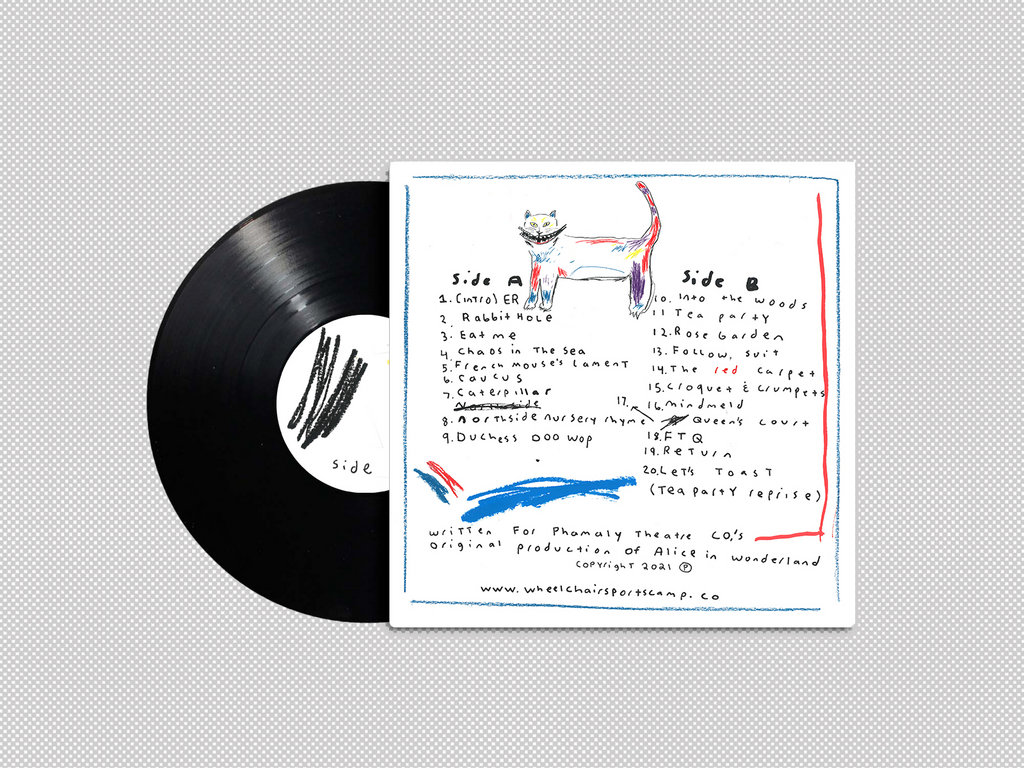 side
Side A
1. (intro) ER
2. Rabbit Hole
3. Eat me
4. Chaos in The Sea
5. French mouse's Lament
6. Caucus
7. Caterpillar
Northside
8. northside nursery rhyme
9. Duchess Doo Wop
Side B
10. into the woods
11 Tea party
12. Rose Garden
13. Follow, suit
14. The red carpet
15. Croquet & Crumpets
16. Mindmeld
17. Queen's Court
18. FTQ
19. Return
20. Let's Toast
(Tea party reprise)
written For Phamaly Theatre CO.'s
Original production of Alice in wonderland
copyright 2021 ℗
www.wheelchairsportscamp.co